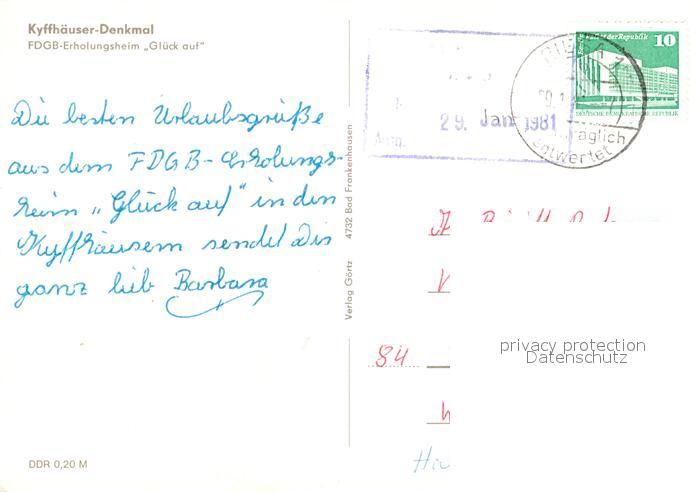 Kyffhäuser-Denkmal
FDGB-Erholungsheim „Glück auf"
Die besten Urlaubsgrüße
aus dem FDGB-Erholungs-
heim „Glück auf" in den
Kyffhäusern sendet Dir
ganz lieb Barbara
Verlag Görtz 4732 Bad Frankenhausen
DDR 0,20 M
29. Jan. 1981
10
DEUTSCHE DEMOKRATISCHE REPUBLIK
entwertet
84
privacy protection
Datenschutz